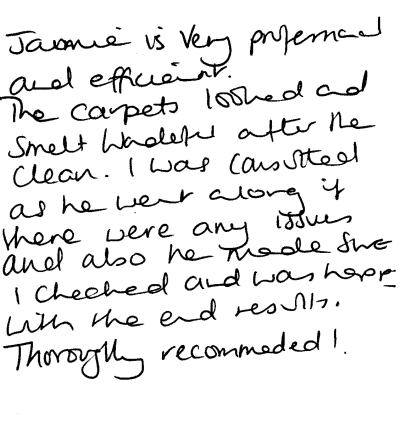 Jammie is very professional
and efficient.
The carpets looked and
smelt wonderful after the
clean. I was consulted
as he went along if
there were any issues
and also he made sure
I checked and was happy
with the end results.
Thoroughly recommeded!.